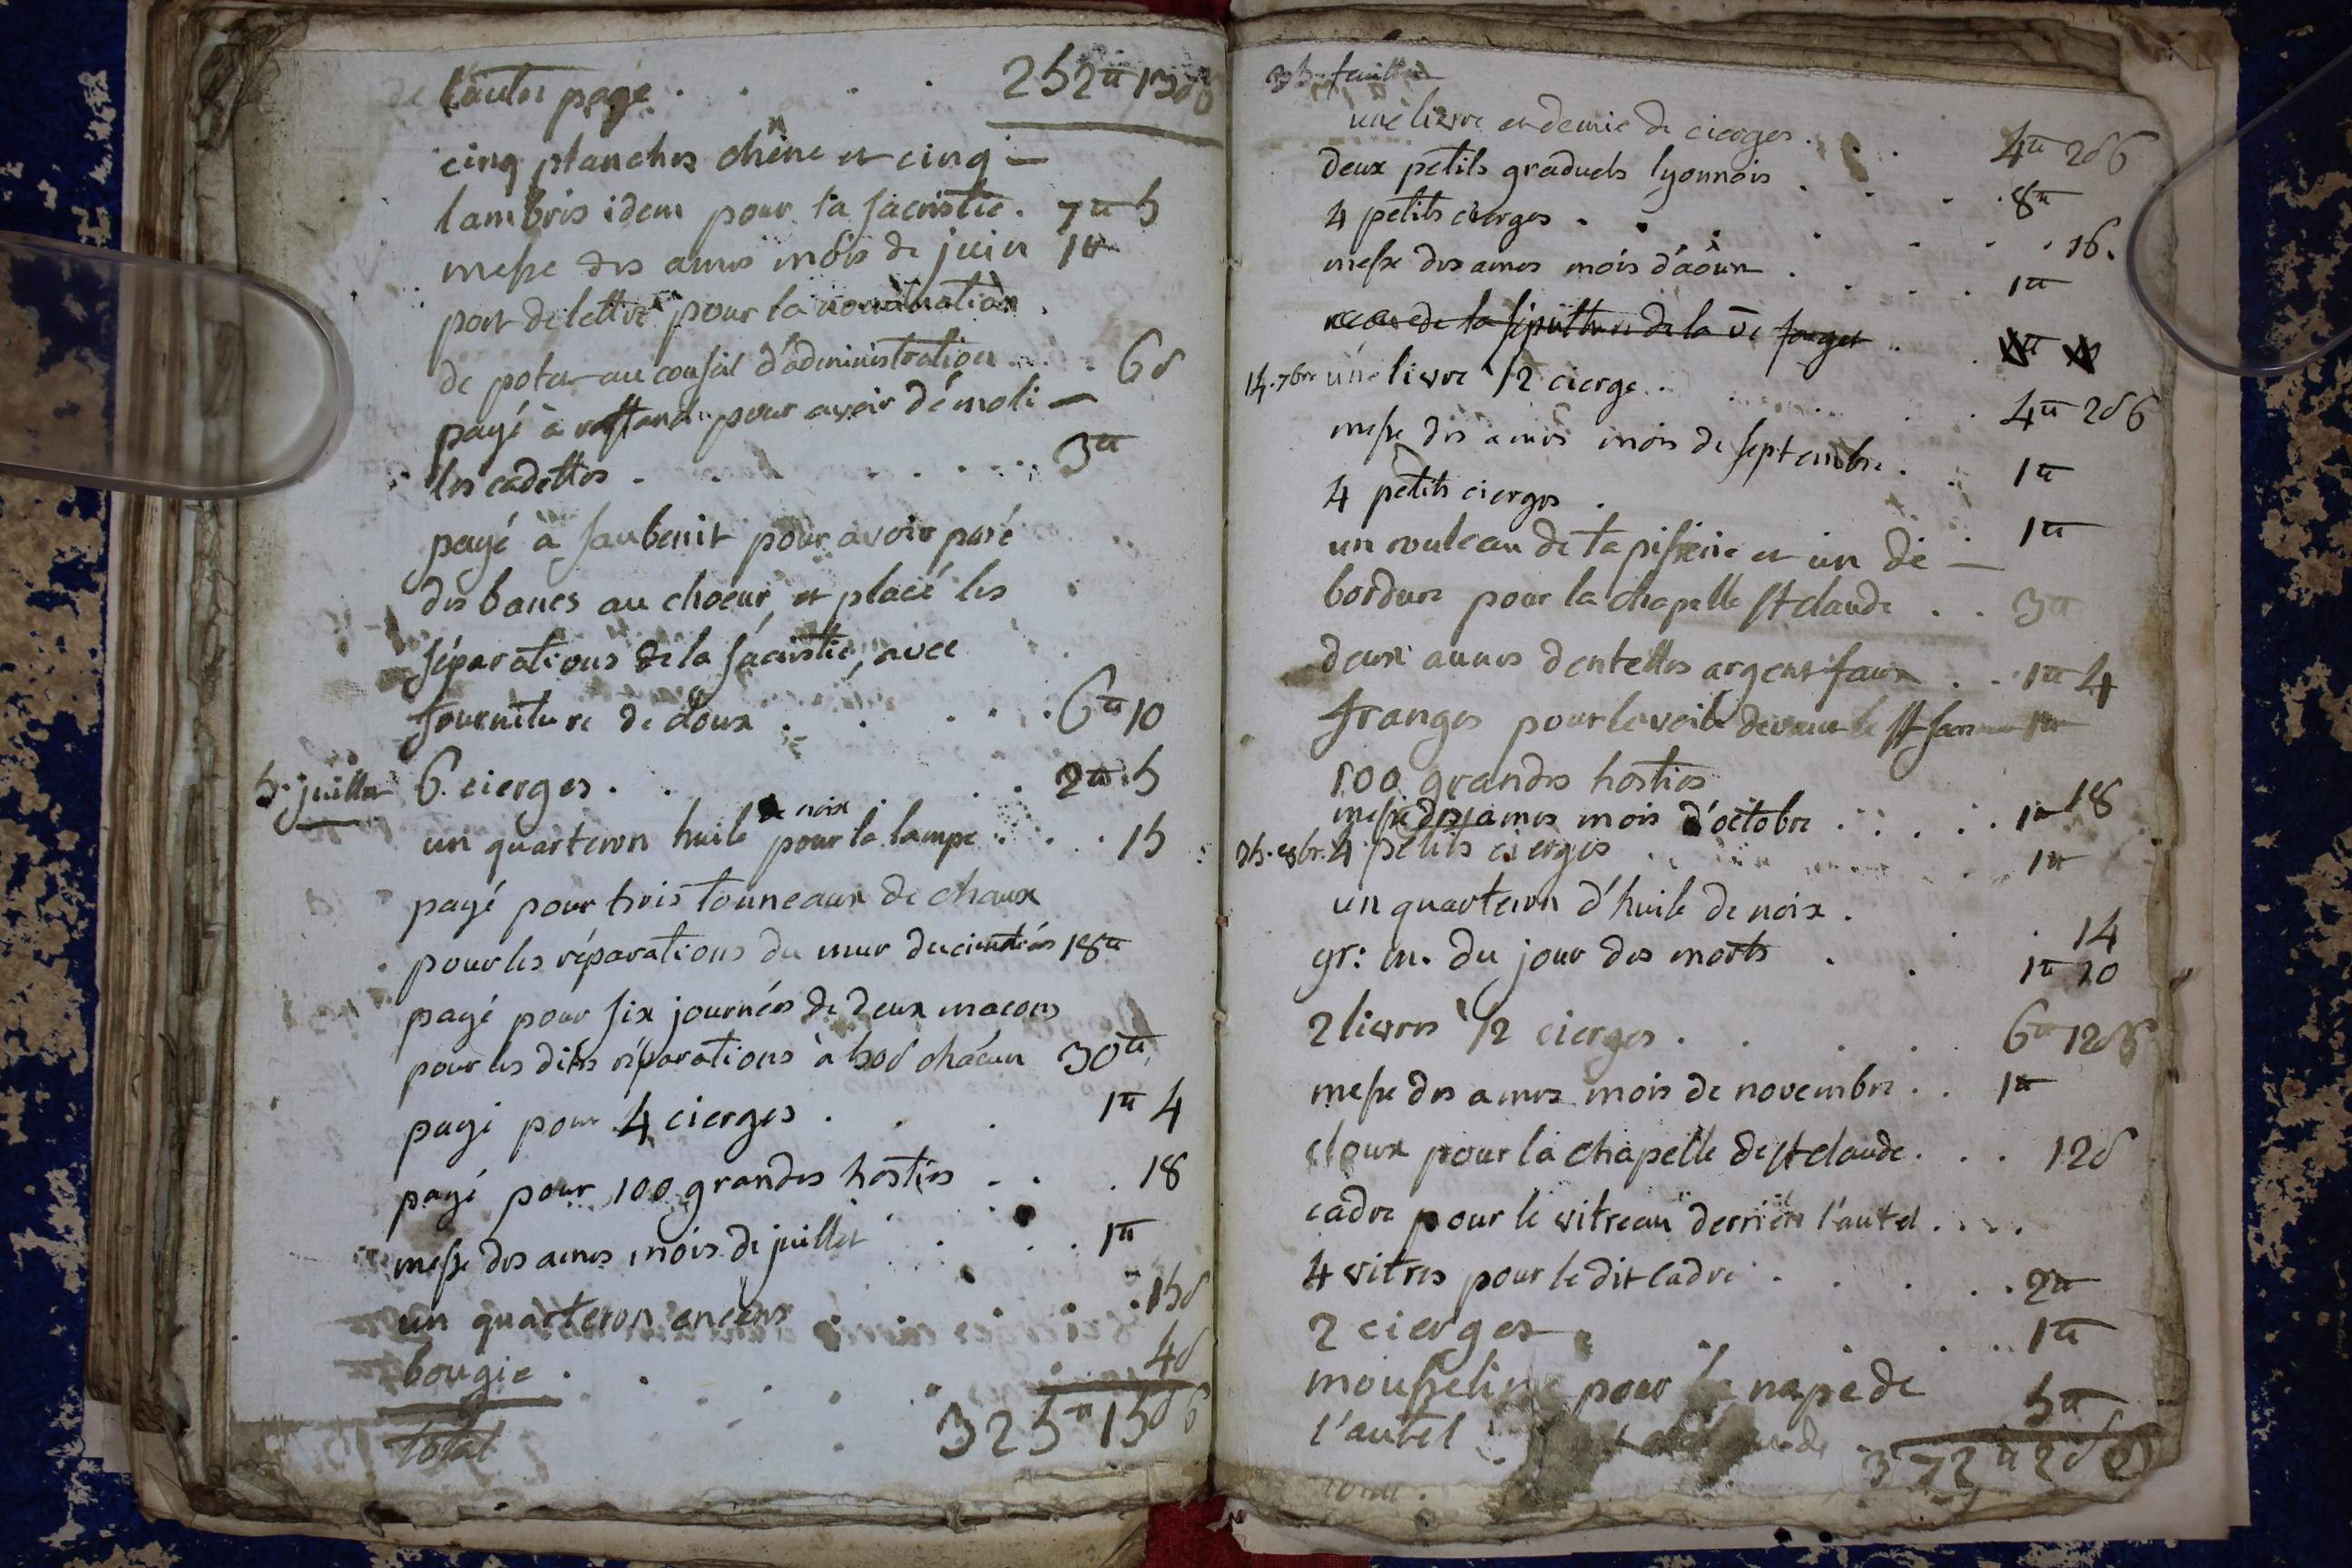 de l'autre page . . . . 252tt 13s 6
cinq planches chêne et cinq -
lambris idem pour la sacristie . 7tt 5
messe des ames mois de juin 1tt
port de lettre pour la nomination .
de potet au conseil d'administration . . . 6s
payé à rostand pour avoir démoli -
les cadettes . . . . . . . 3tt
payé à faubenit pour avoir posé
des bancs au choeur et placé les
séparations de la sacristie, avec
fourniture de cloux . . . . . . 6tt 10
5. juillet 6. cierges . . . . . 2tt 5
un quarteron huile de noix pour la lampe . . . 15
payé pour trois tonneaux de chaux
pour les réparations du mur du cimetière 18tt
payé pour six journées de deux macons
pour les dites réparations à 50s chacun 30tt
payé pour 4 cierges . . . 1tt 4
payé pour 100 grandes hosties . . . 18
messe des ames mois de juillet . . . 1tt
un quarteron encens . . . . 15s
bougie . . . . . 4s
total . . . 325tt 15s 6
une livre et demie de cierges . . . 4tt 2s 6
deux petits graduels lyonnois . . . 8tt
4 petits cierges . . . . . . 16.
messe des ames mois d'août . . . . 1tt
recu de la sépulture de la ve forget . .
14. 7bre une livre 1/2 cierge . . . . 4tt 2s 6
messe des ames mois de septembre . . 1tt
4 petits cierges . . 1tt
un rouleau de tapisserie et un de -
bordure pour la chapelle st claude . . 3tt
deux aunes dentelles argent faux . . 1tt 4
franges pour le voile devant le st 1tt
100 grandes hosties 18
messe des ames mois d'octobre . . . . . 1tt
25. 8br. 4 petits cierges . . . 1tt
un quarteron d'huile de noix . . . 14
gr: m. du jour des morts . . 1tt 10
2 livres 1/2 cierges . . . . 6tt 12s 6
messe des ames mois de novembre . . 1tt
cloux pour la chapelle de st claude . . . 12s
cadre pour le vitreau derriere l'autel . . . .
4 vitres pour le dit cadre . . . . 2tt
2 cierges . . . . . 1tt
mousseline pour la nape de
l'autel 5tt
total . 372tt 2s